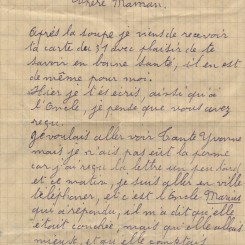 Chère Maman.
Après la soupe je viens de recevoir
la carte du 31 avec plaisir de te
savoir en bonne santé, il en est
de même pour moi.
Hier je t'ai écris, ainsi qu'à
l'Oncle, je pense que vous avez
reçu.
Je voulais aller voir Tante Yvonne
mais je n'ais pas eut la perme
car j'ai reçu la lettre un peu tard,
et ce matin, je suis aller en ville
téléphoner, et c'est l'Oncle Marius
qui a répondu, il m'a dit qu'elle
était couchée, mais qu'elle allait
mieux, et qu'elle comptait